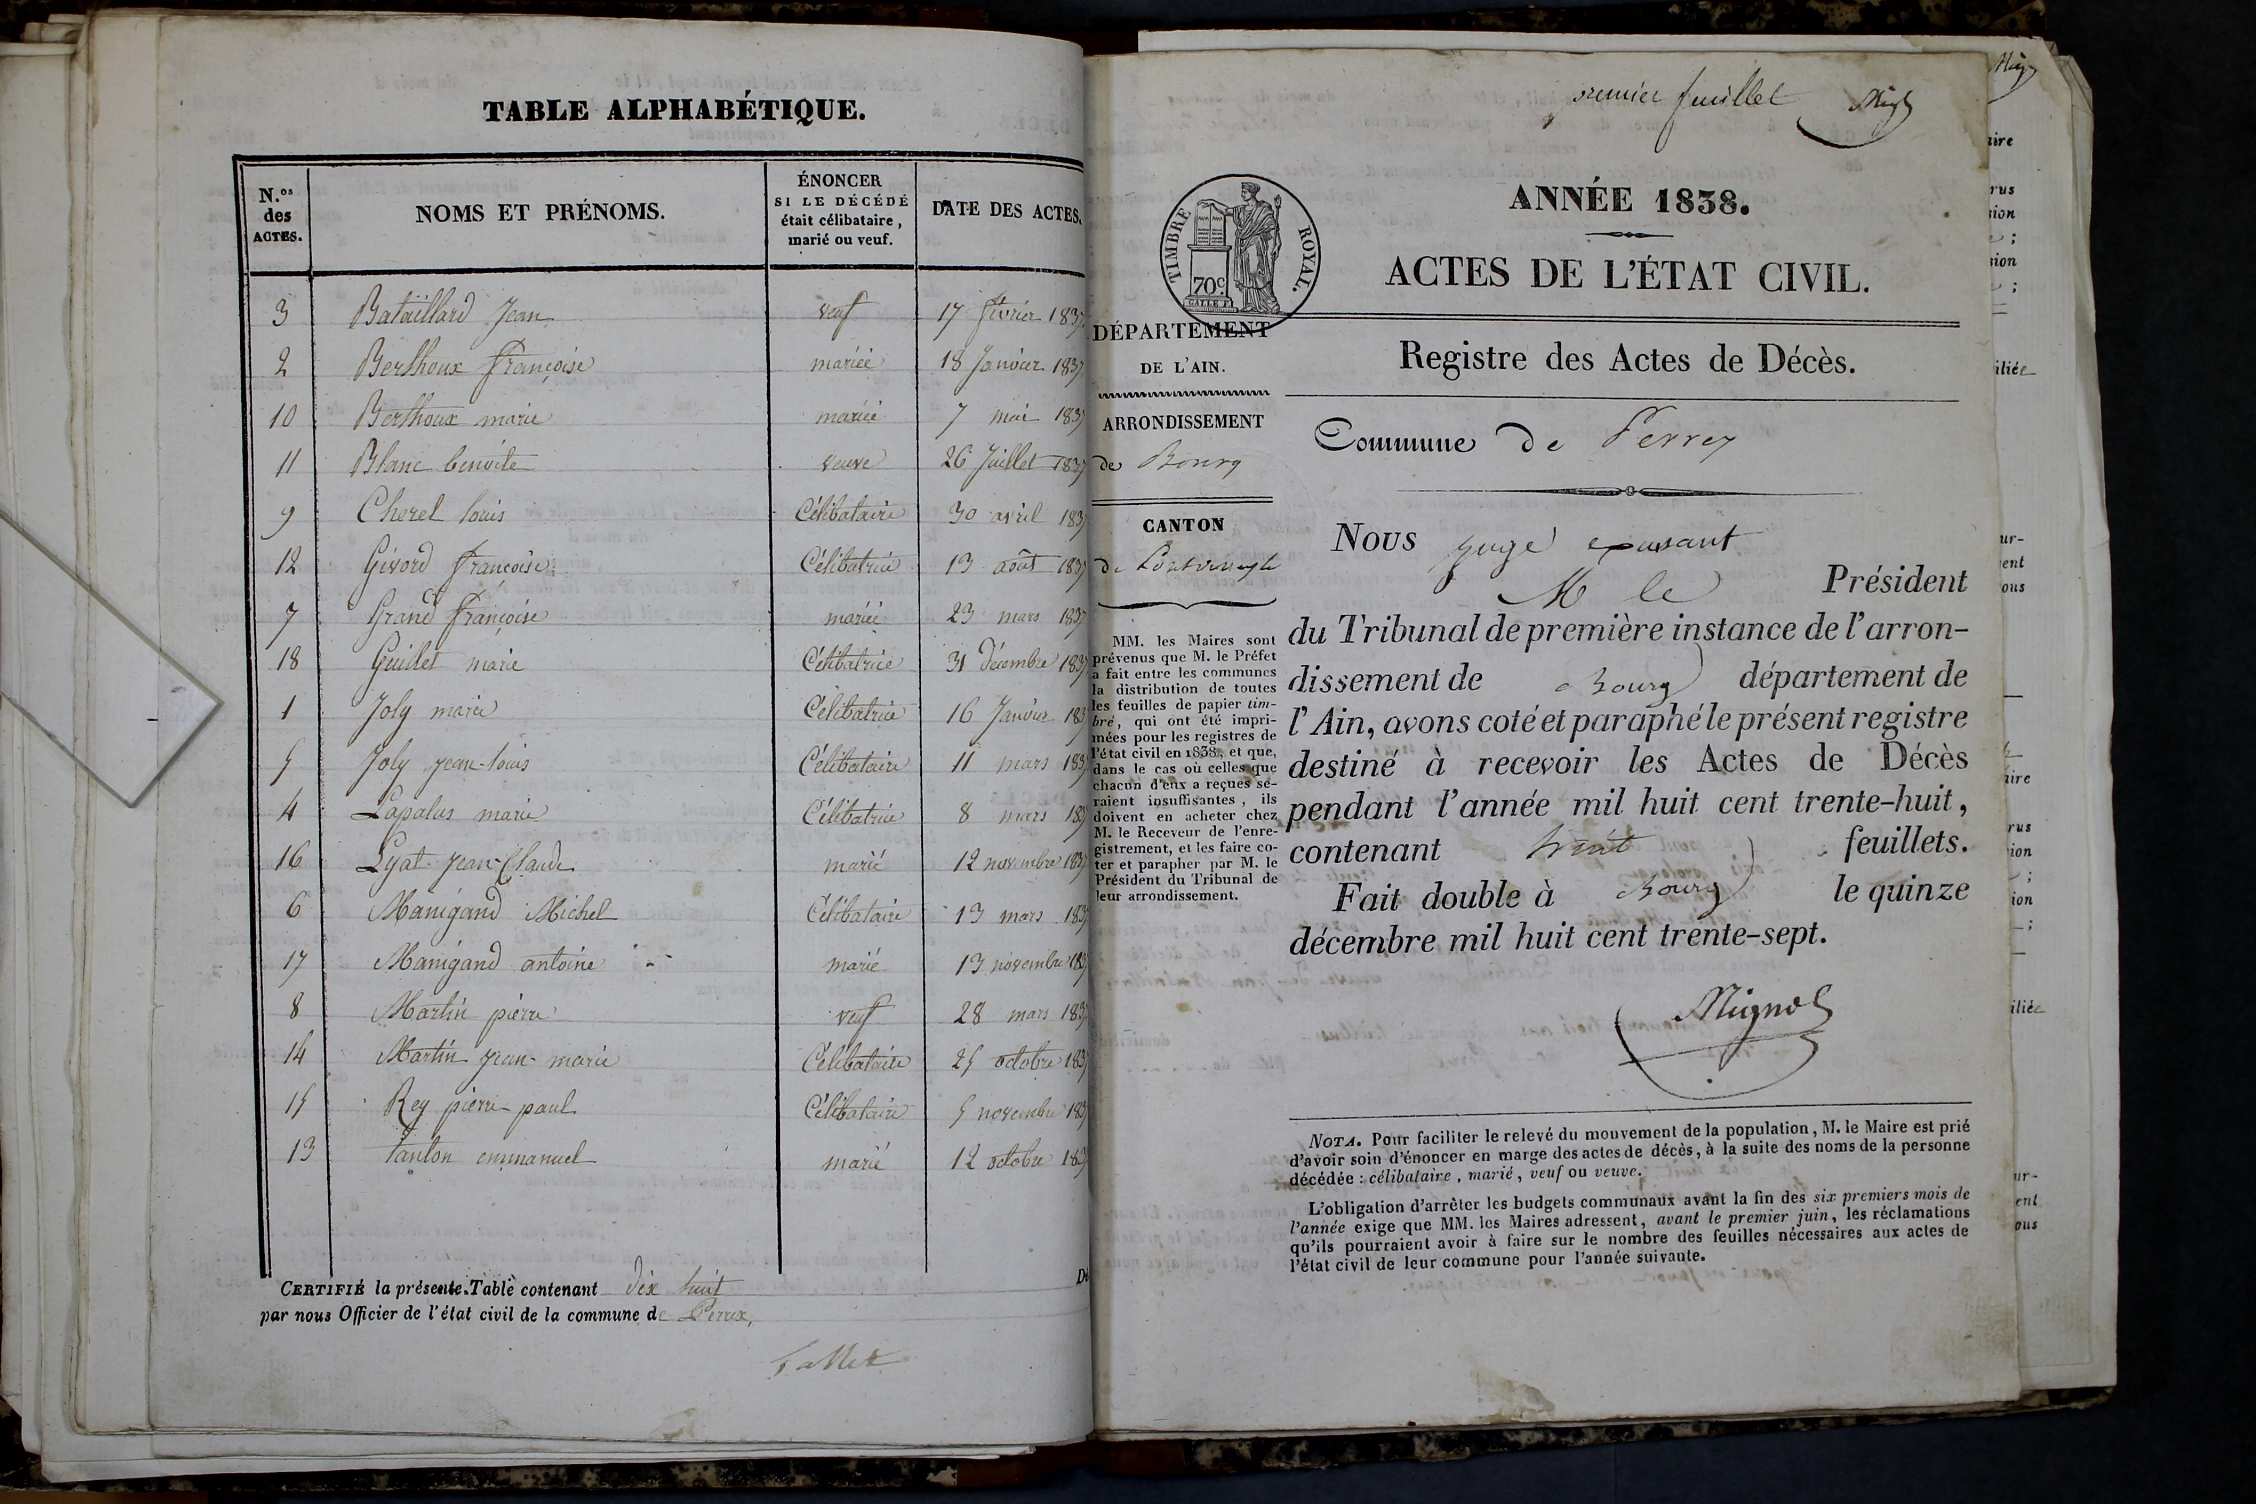 TABLE ALPHABÉTIQUE.
N.os des ACTES.
NOMS ET PRÉNOMS.
ÉNONCER SI LE DÉCÉDÉ était célibataire, marié ou veuf.
DATE DES ACTES.
3 Bataillard Jean veuf 17 février 1837
2 Berthoux françoise mariée 18 Janvier 1837
10 Berthoux marie mariée 7 mai 1837
11 Blanc benoite veuve 26 Juillet 1837
9 Cherel louis Célibataire 30 avril 1837
12 Givord françoise Célibatrice 13 août 1837
7 Grand françoise mariée 23 mars 1837
18 Guillet marie Célibatrice 31 décembre 1837
1 Joly marie Célibatrice 16 Janvier 183
5 Joly jean-louis Célibataire 11 mars 1837
4 Lapalus marie Célibatrice 8 mars 1837
16 Lyat jean-Claude marié 12 novembre 1837
6 Manigand Michel Célibataire 13 mars 1837
17 Manigand antoine marié 13 novembre 1837
8 Martin pierre veuf 28 mars 1837
14 Martin jean-marie Célibataire 25 octobre 1837
15 Rey pierre-paul Célibataire 5 novembre 1837
13 tanton emmanuel marié 12 octobre 1837
CERTIFIÉ la présente Table contenant dix huit
par nous Officier de l'état civil de la commune de Perrex,
premier feuillet
TIMBRE ROYAL.
70c.
ANNÉE 1838.
ACTES DE L'ÉTAT CIVIL.
DÉPARTEMENT
DE L'AIN.
ARRONDISSEMENT
de Bourg
CANTON
de
MM. les Maires sont
prévenus que M. le Préfet
a fait entre les communes
la distribution de toutes
les feuilles de papier tim-
bré, qui ont été impri-
mées pour les registres de
l'état civil en 1838, et que,
dans le cas où celles que
chacun d'eux a reçues se-
raient insuffisantes, ils
doivent en acheter chez
M. le Receveur de l'enre-
gistrement, et les faire co-
ter et parapher par M. le
Président du Tribunal de
leur arrondissement.
Registre des Actes de Décès.
Commune de Perrex
Nous juge
M le Président
du Tribunal de première instance de l'arron-
dissement de Bourg département de
l'Ain, avons coté et paraphé le présent registre
destiné à recevoir les Actes de Décès
pendant l'année mil huit cent trente-huit,
contenant huit feuillets.
Fait double à Bourg le quinze
décembre mil huit cent trente-sept.
Mignot
NOTA. Pour faciliter le relevé du mouvement de la population, M. le Maire est prié
d'avoir soin d'énoncer en marge des actes de décès, à la suite des noms de la personne
décédée : célibataire, marié, veuf ou veuve.
L'obligation d'arrêter les budgets communaux avant la fin des six premiers mois de
l'année exige que MM. les Maires adressent, avant le premier juin, les réclamations
qu'ils pourraient avoir à faire sur le nombre des feuilles nécessaires aux actes de
l'état civil de leur commune pour l'année suivante.